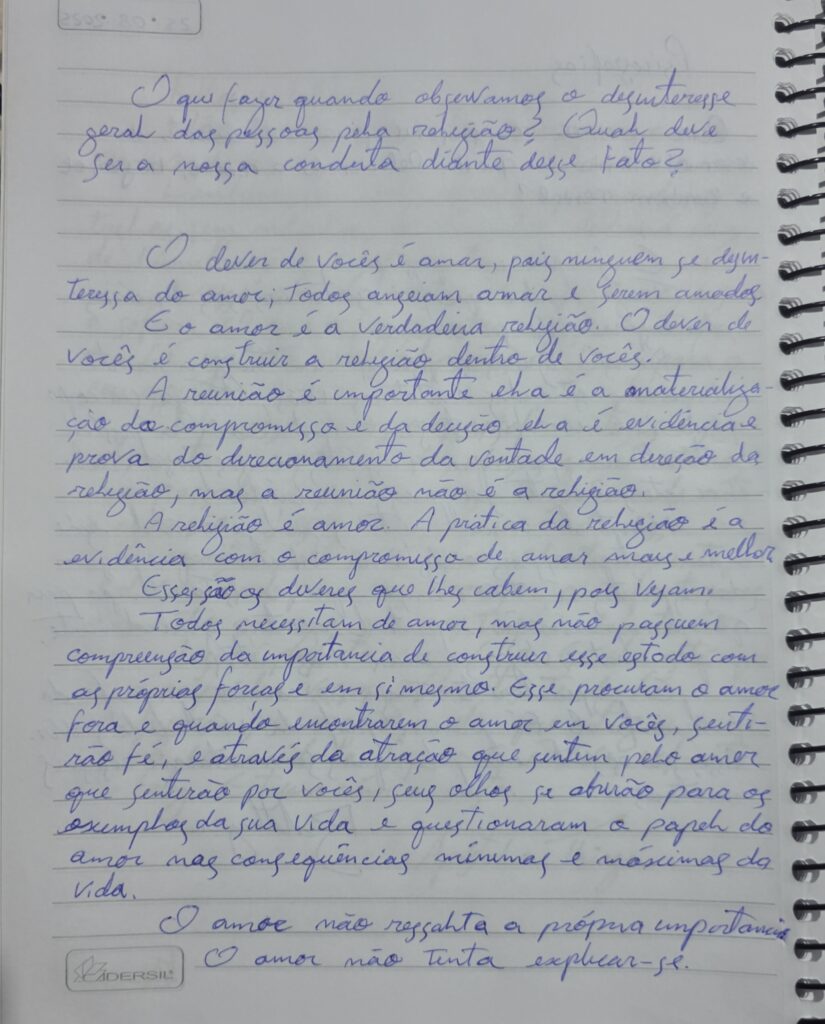 O que fazer quando observamos o desinteresse
geral das pessoas pela religião? Qual deve
ser a nossa conduta diante desse fato?
O dever de vocês é amar, pois ninguém se desin-
teressa do amor; todos anseiam amar e serem amados
E o amor é a verdadeira religião. O dever de
vocês é construir a religião dentro de vocês.
A reunião é importante ela é a materializa-
ção do compromisso e da decisão ela é evidência e
prova do direcionamento da vontade em direção da
religião, mas a reunião não é a religião.
A religião é amor. A prática da religião é a
evidência com o compromisso de amar mais e melhor
Esses são os deveres que lhes cabem, pois vejam.
Todos necessitam de amor, mas não possuem
compreenção da importancia de construir esse estado com
as próprias forcas e em si mesmo. Esse procuram o amor
fora e quando encontrarem o amor em vocês, senti-
rão fé, e através da atração que sentem pelo amor
que sentirão por vocês, seus olhos se abrirão para os
exemplos da sua vida e questionaram o papel do
amor nas consequências mínimas e máximas da
vida.
O amor não ressalta a própria importancia
O amor não tenta explicar-se.
IDERSIL